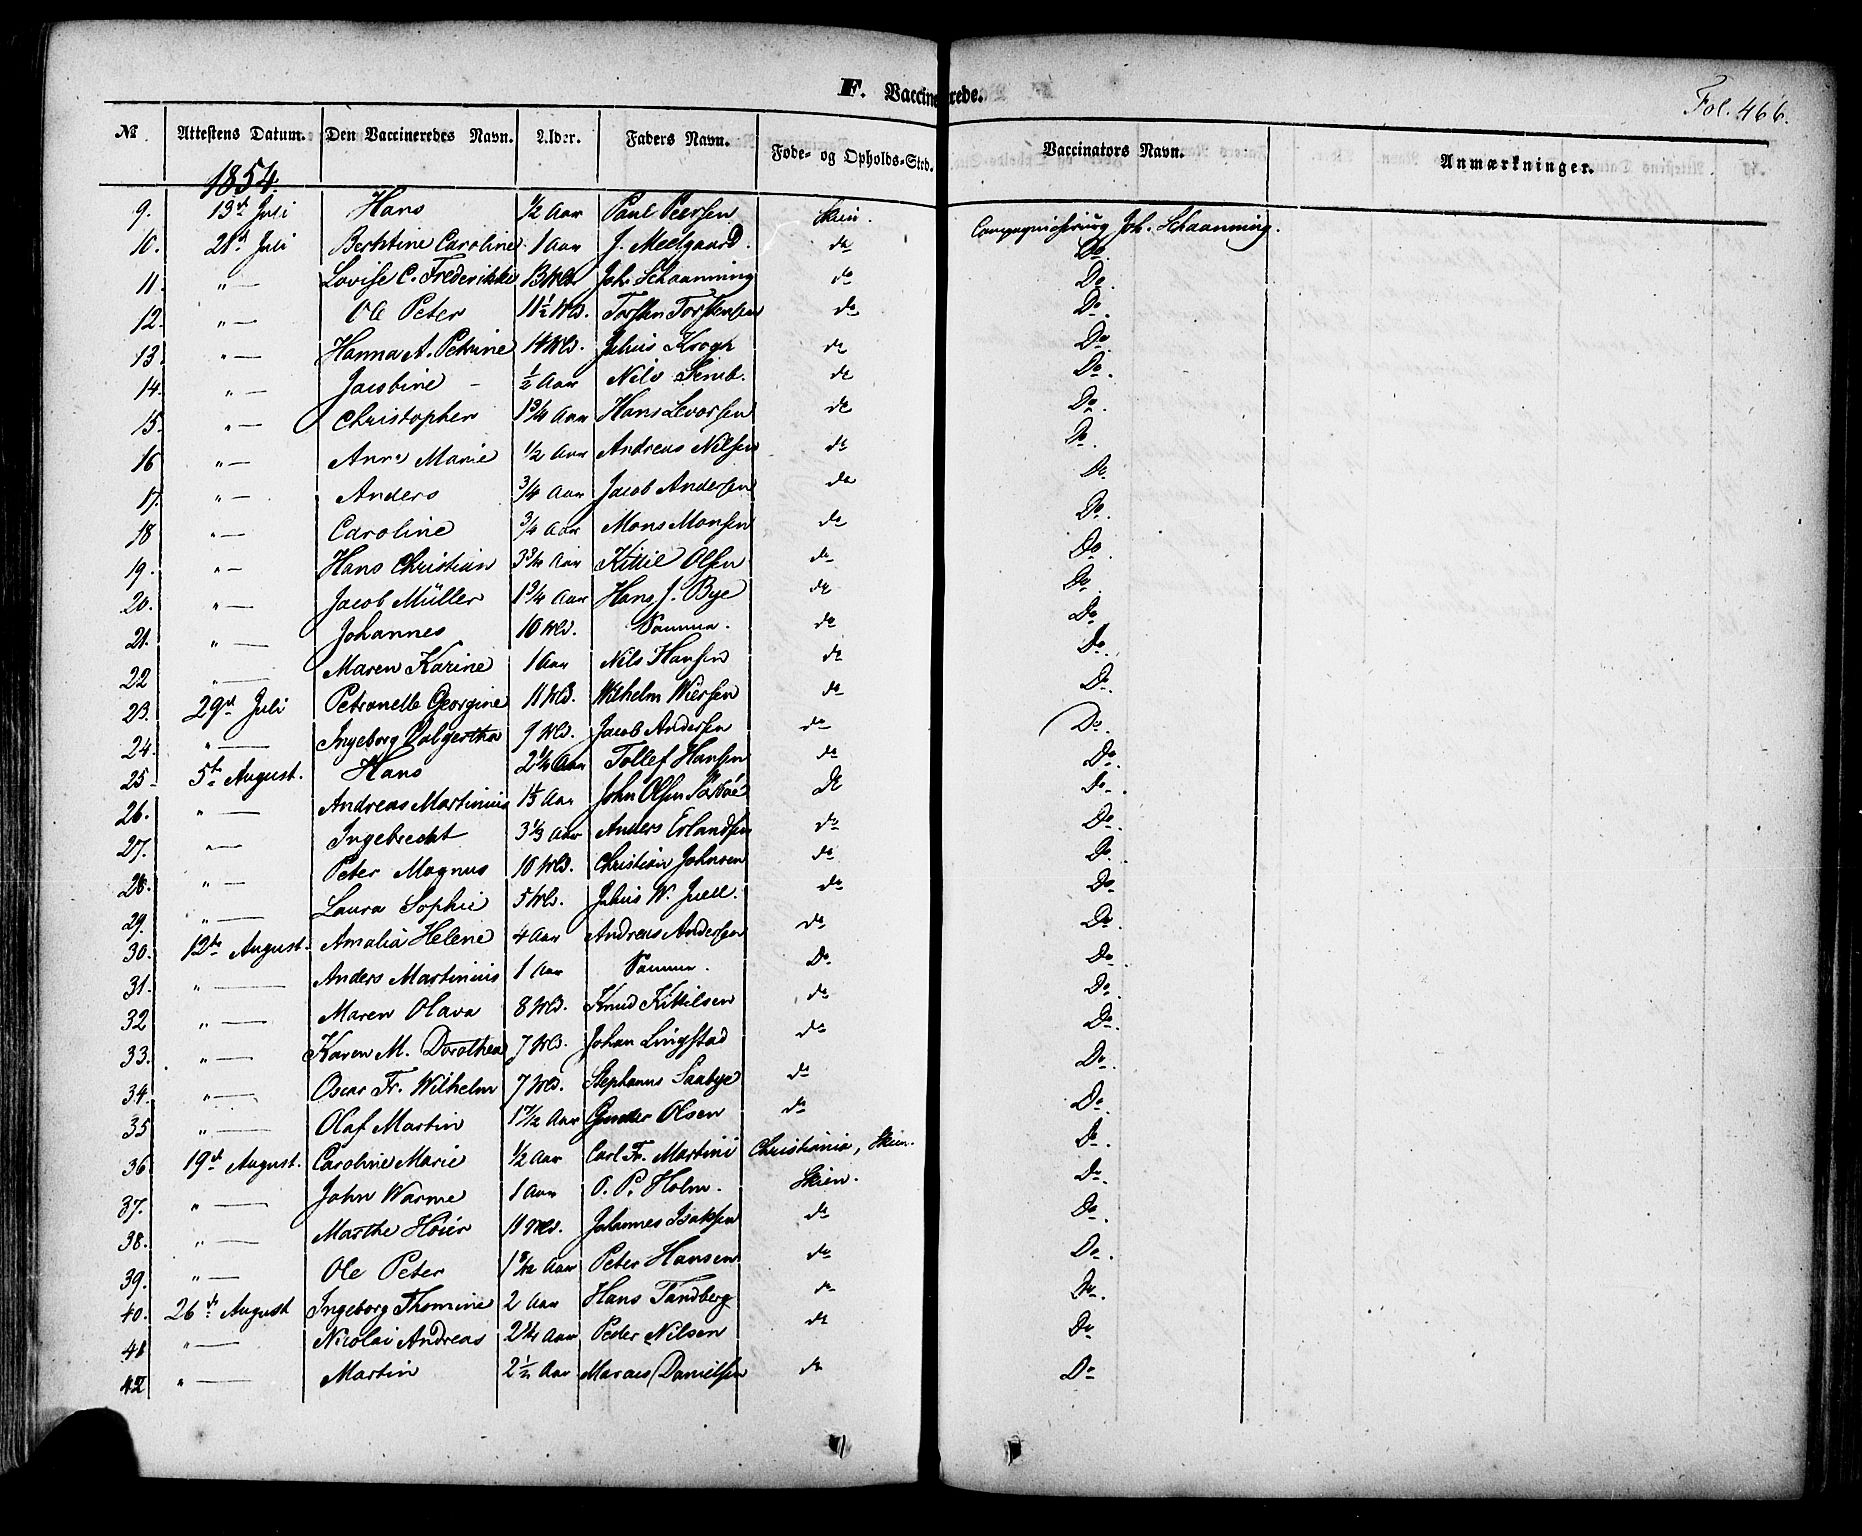 F. Vaccinerede.
Fol. 466.
№ Attestens Datum. Den Vaccineredes Navn. Alder. Faders Navn. Føde- og Opholds-Sted. Vaccinators Navn. Anmærkninger.
1854.
9. 13de Juli Hans 1/2 Aar Paul Peersen Skien. Compagnichirurg Joh. Schaanning.
10. 21de Juli Berhtine Caroline 1 Aar J. Meelgaard do Do
11. " — Lovise C. Frederikke 13 Mdr Joh. Schaanning do Do
12. " — Ole Peter 11 1/2 Md. Torsten Torstensen do Do
13. " — Hanna A. Petrine 14 Md. Julius Krogh do Do
14. " — Jacobine 1/2 Aar Nils do Do
15. " — Christopher 1 3/4 Aar Hans Levorsen do Do
16 " — Anne Marie 1/2 Aar Andreas Nilsen do Do
17. " — Anders 3/4 Aar Jacob Andersen do Do
18 " — Caroline 3/4 Aar Mons Monsen do Do
19. " — Hans Christian 3 3/4 Aar Kittil Olsen do Do
20. " — Jacob Müller 1 3/4 Aar Hans J. Bye do Do
21. " — Johannes 10 Md. Samme. do Do
22 " — Maren Karine 1 Aar Nils Hansen do Do
23. 29de Juli Petronelle Georgine 11 Md. Wilhelm Wiersen do Do
24. " — Ingeborg Valgertha 9 Md. Jacob Andersen do Do
25 5te August. Hans 2 1/4 Aar Tollef Hansen do Do
26. " — Andreas Martinius 1 1/3 Aar John Olsen do Do
27. " — Ingebrecht 3 1/3 Aar Anders Erlandsen do Do
28. " — Peter Magnus 10 Md. Christian Johnsen do Do
29. " — Laura Sophie 5 Md. Julius W. Juell. do Do
30. 12te August. Amalia Helene 4 Aar Andreas Andersen do Do
31. " — Anders Martinius 1 Aar Samme. Do Do
32 " — Maren Olava 8 Md. Knud Kittilsen do Do
33. " — Karen M. Dorothea 7 Md. Johan Lingstad do Do
34. " — Oscar Fr. Wilhelm 7 Md. Stephanus Saabye do Do
35 " — Olaf Martin 1 7/12 Aar Gunder Olsen do Do
36 19de August. Caroline Marie 1/2 Aar Carl Fr. Martini Christiania, Skien. Do
37. " — John Warme 1 Aar O. P. Holm. Skien. Do
38. " — Marthe Høier 11 Md. Johannes Isaksen do Do
39. " — Ole Peter 1 8/12 Aar Peter Hansen do Do
40. 26de August Ingeborg Thomine 2 Aar Hans Tandberg do Do
41 " — Nicolai Andreas 2 1/4 Aar Peder Nilsen do Do
42 " — Martin 2 1/2 Aar Marcus Danielsen do Do